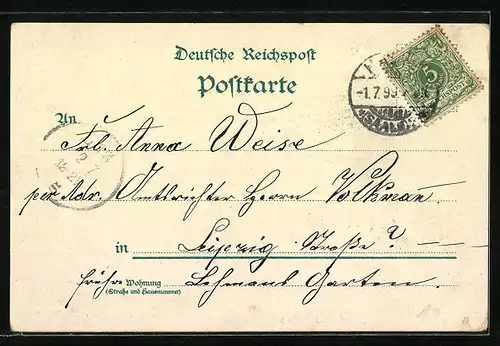 Deutsche Reichspost
Postkarte
-1.7.99
5
An
Frl. Anna Weise
per Adr. Amtsrichter Herrn Volkman̄
in Leipzig Straße?
frühre Wohnung Lehmans Garten.
(Straße und Hausnummer)